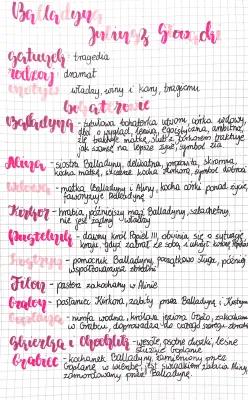 Balladyna
Juliusz Słowacki
gatunek - tragedia
rodzaj - dramat
motywy - władzy, winy i kary, tragizmu
bohaterowie
Balladyna - tytułowa bohaterka utworu, córka wdowy,
dba o wygląd, leniwa, egoistyczna, ambitna,
źle traktuje matkę,
się na lepsze życie, symbol zła
Alina - siostra Balladyny, delikatna, pracowita, skromna,
kocha matkę, symbol dobroci
Wdowa - matka Balladyny i Aliny, kocha córki ponad życie,
faworyzuje Balladynę
Kirkor - hrabia, późniejszy mąż Balladyny, szlachetny,
nie jest żądny władzy
Pustelnik - dawny król Popiel III, obwinia się o sytuację
kraju, gdyż zabrał ze sobą
Kostryn - pomocnik Balladyny, początkowo sługa, później
współtowarzysz zbrodni
Filon - pasterz zakochany w Alinie
Gralon - posłaniec Kirkora, zabity przez Balladynę i Kostryna
Goplana - nimfa wodna, królowa jeziora Gopło, zakochana
w Grabcu, doprowadza do całego szeregu zbrodni
Skierka i Chochlik - wesołe, psotne duszki, leśne
służące Goplanie
Grabiec - kochanek Balladyny, zamieniony przez
Goplanę w wierzbę, był świadkiem zabicia Aliny,
zamordowany przez Balladynę.